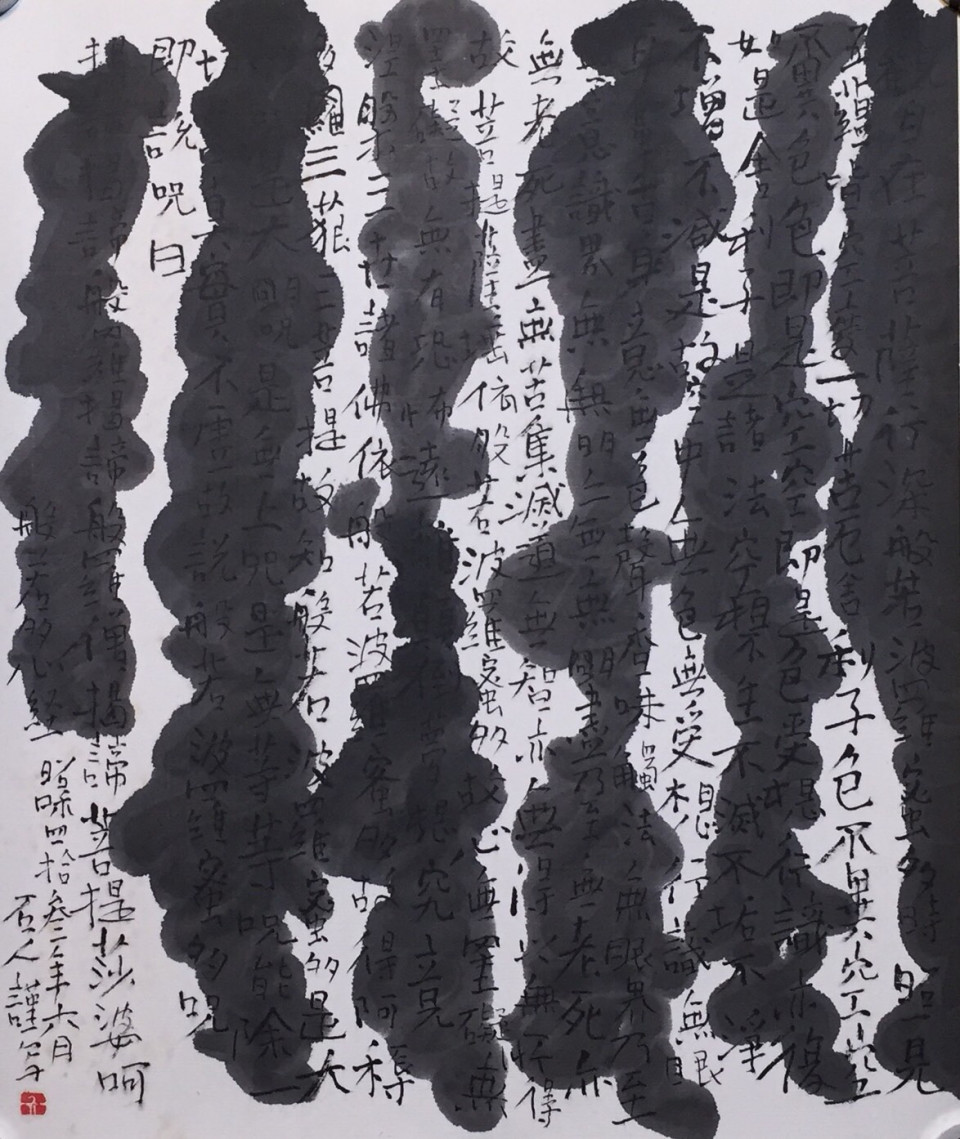 觀自在菩薩行深般若波羅蜜多時照見
五蘊皆空度一切苦厄舎利子色不異空空
不異色色即是空空即是色受想行識亦復
如是舎利子是諸法空相不生不滅不垢不淨
不増不減是故空中無色無受想行識無眼
耳鼻舌身意無色聲香味觸法無眼界乃至
無意識界無無明亦無無明盡乃至無老死亦
無老死盡無苦集滅道無智亦無得以無所得
故菩提薩埵依般若波羅蜜多故心無罣礙無
罣礙故無有恐怖遠離顛倒夢想究竟
涅槃三世諸佛依般若波羅蜜多故得阿耨
多羅三藐三菩提故知般若波羅蜜多是大
咒是大明咒是無上咒是無等等咒能除一
切苦真實不虛故説般若波羅蜜多咒
即説咒曰
揭諦揭諦般羅揭諦般羅僧揭諦菩提莎婆呵
般若多心経
昭和四拾参年六月
石人謹写